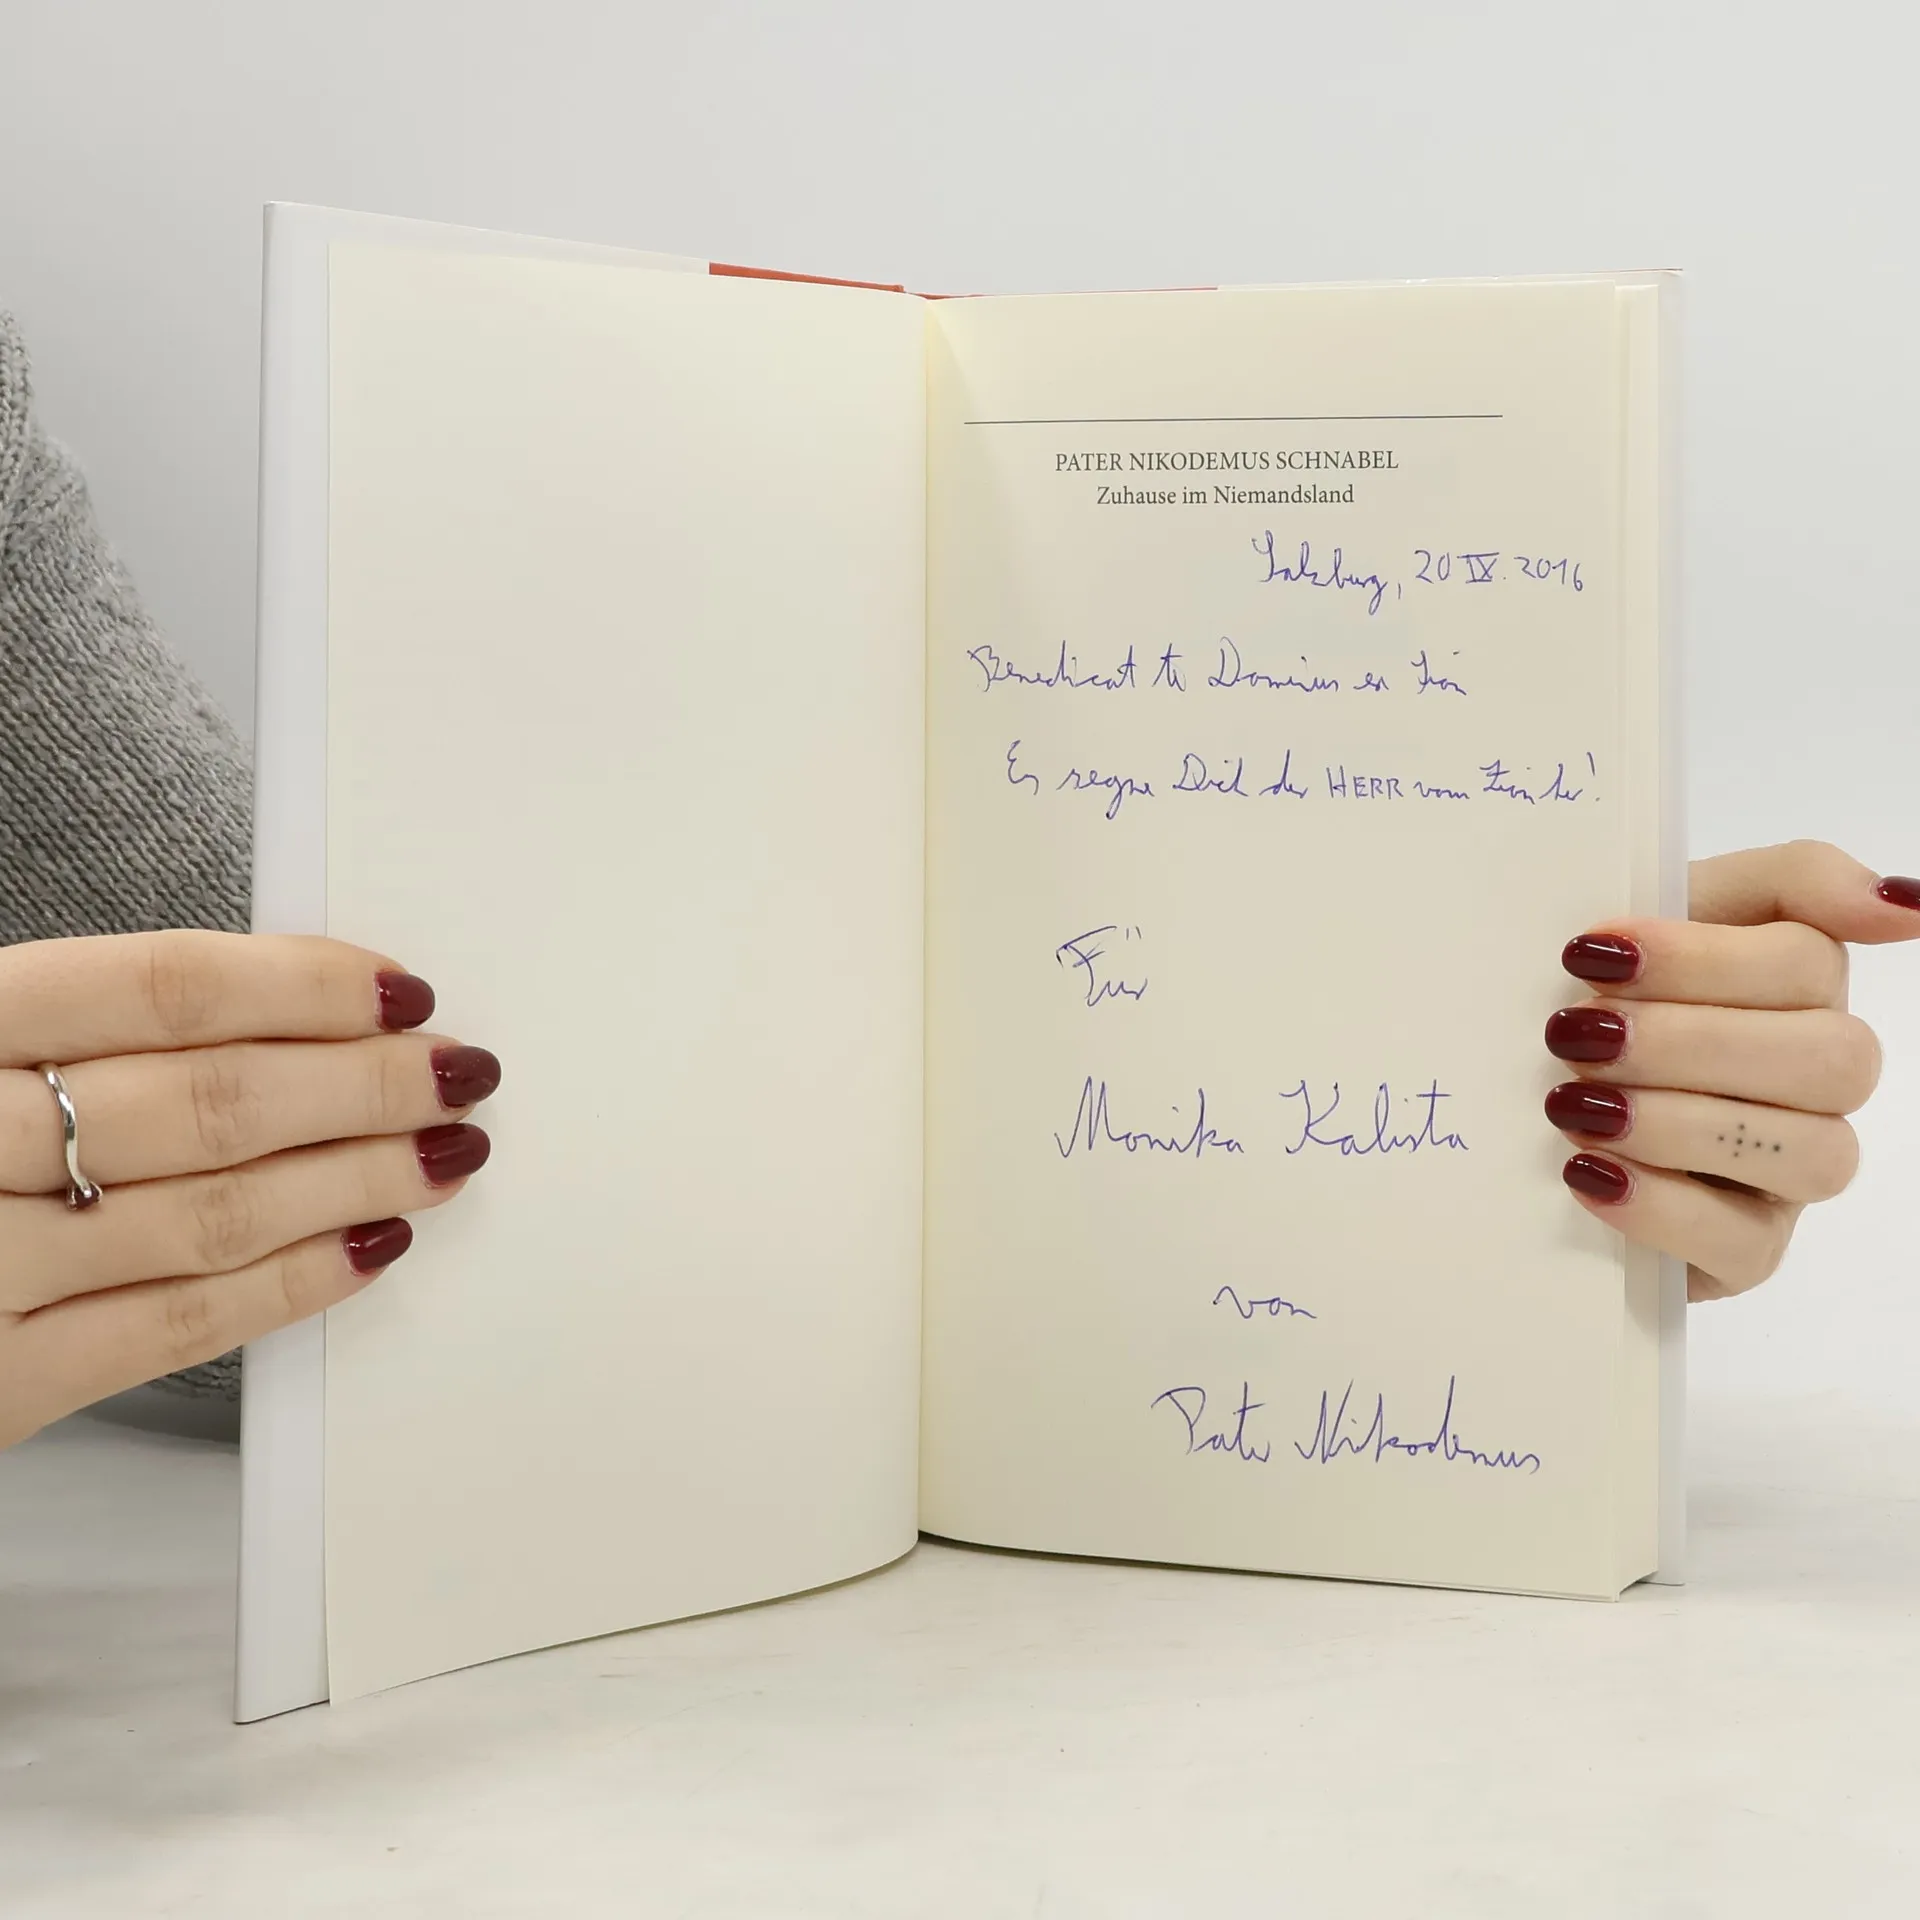 PATER NIKODEMUS SCHNABEL
Zuhause im Niemandsland
Salzburg, 20 IX. 2016
Benedicat te Dominus ex Sion
Es segne Dich der HERR vom Zion her!
Für
Monika Kalista
von
Pater Nikodemus